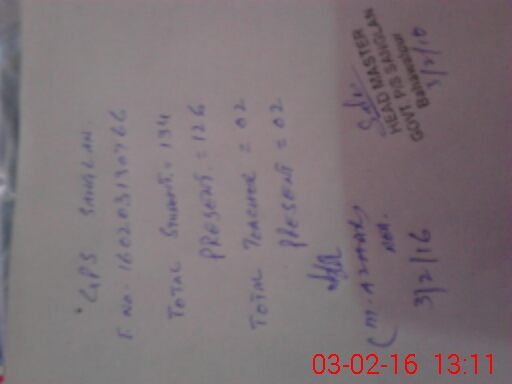 GPS SANGLAN
F No. 160203130766
TOTAL STUDENT = 134
PRESENT = 126
TOTAL TEACHER = 02
PRESENT = 02
(M. AZHAR)
3/2/16
HEAD MASTER
GOVT P/S SANGLAN
Bahawalpur
3/2/16
03-02-16 13:11